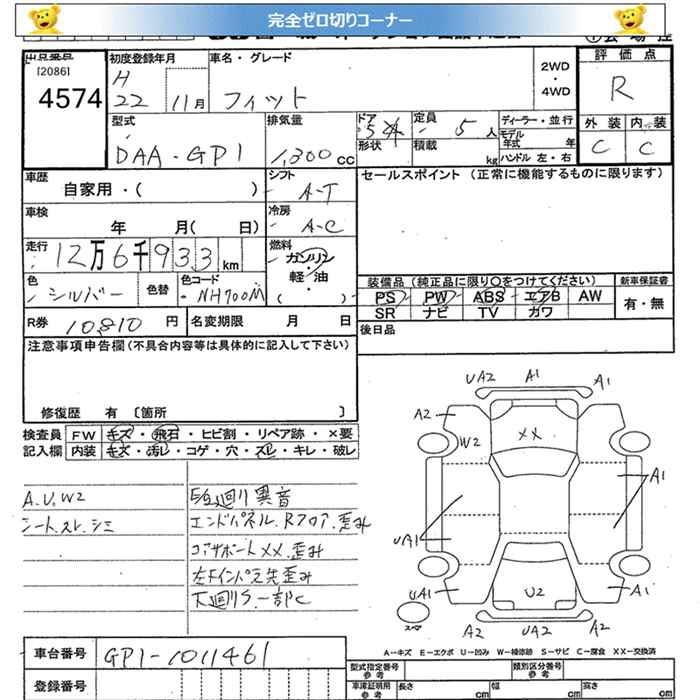 完全ゼロ切りコーナー
出品番号 初度登録年月 車名・グレード 2WD ・ 4WD 評価点
[2086] H R
4574 22 11月 フィット
型式 排気量 ドア 定員 ディーラー・並行 外装 内装
DAA-GP1 1,300cc 5 形状 5人 積載 kg モデル年式 年 ハンドル 左・右 C C
車歴 シフト セールスポイント(正常に機能するものに限ります)
自家用・( ) A-T
車検 年 月( 日) 冷房 A-C
走行 12万6千933km 燃料 ガソリン
軽・油 ( )
色 シルバー 色替 色コード NH700M
装備品(純正品に限り〇をつけてください) 新車保証書
PS PW ABS エアB AW 有・無
SR ナビ TV カワ
R券 10810円 名変期限 月 日 後日品
注意事項申告欄(不具合内容等は具体的に記入して下さい)
修復歴 有 〔箇所 〕
検査員 FW キズ・飛石・ヒビ割・リペア跡・×要
記入欄 内装 キズ・汚レ・コゲ・穴・スレ・キレ・破レ
A.U.W2
シートスレ.シミ
廻り異音
エンドパネル.Rフロア.歪み
コアサポートXX.歪み
左Fインパネ先歪み
下廻りS.一部C
UA2 A1 A1
A2
W2 XX
A1
UA1
U2
UA1 A1
スペア A2 UA2 A2
A－キズ E－エクボ U－凹み W－補修跡 S－サビ C－腐食 XX－交換済
車台番号 GP1-1011461
登録番号
型式指定番号 参考 類別区分番号 参考
車庫証明用 参考 長さ cm 幅 cm 高さ cm